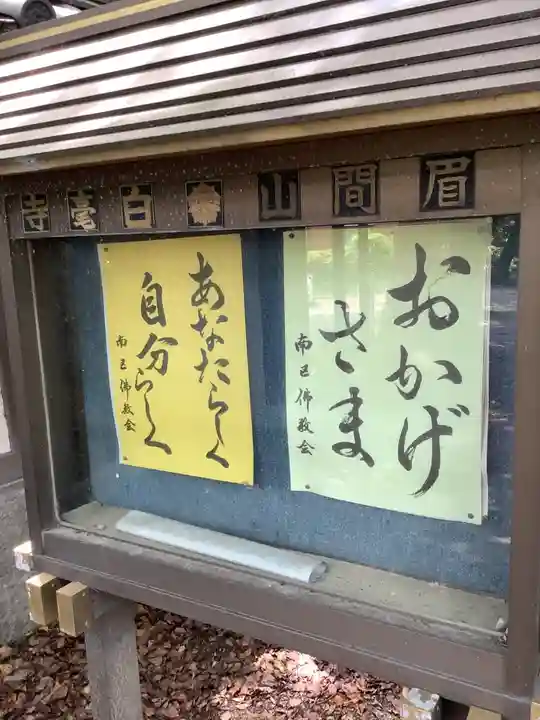 眉間山 白毫寺
おかげ
さま
南区佛教会
あなたらしく
自分らしく
南区佛教会